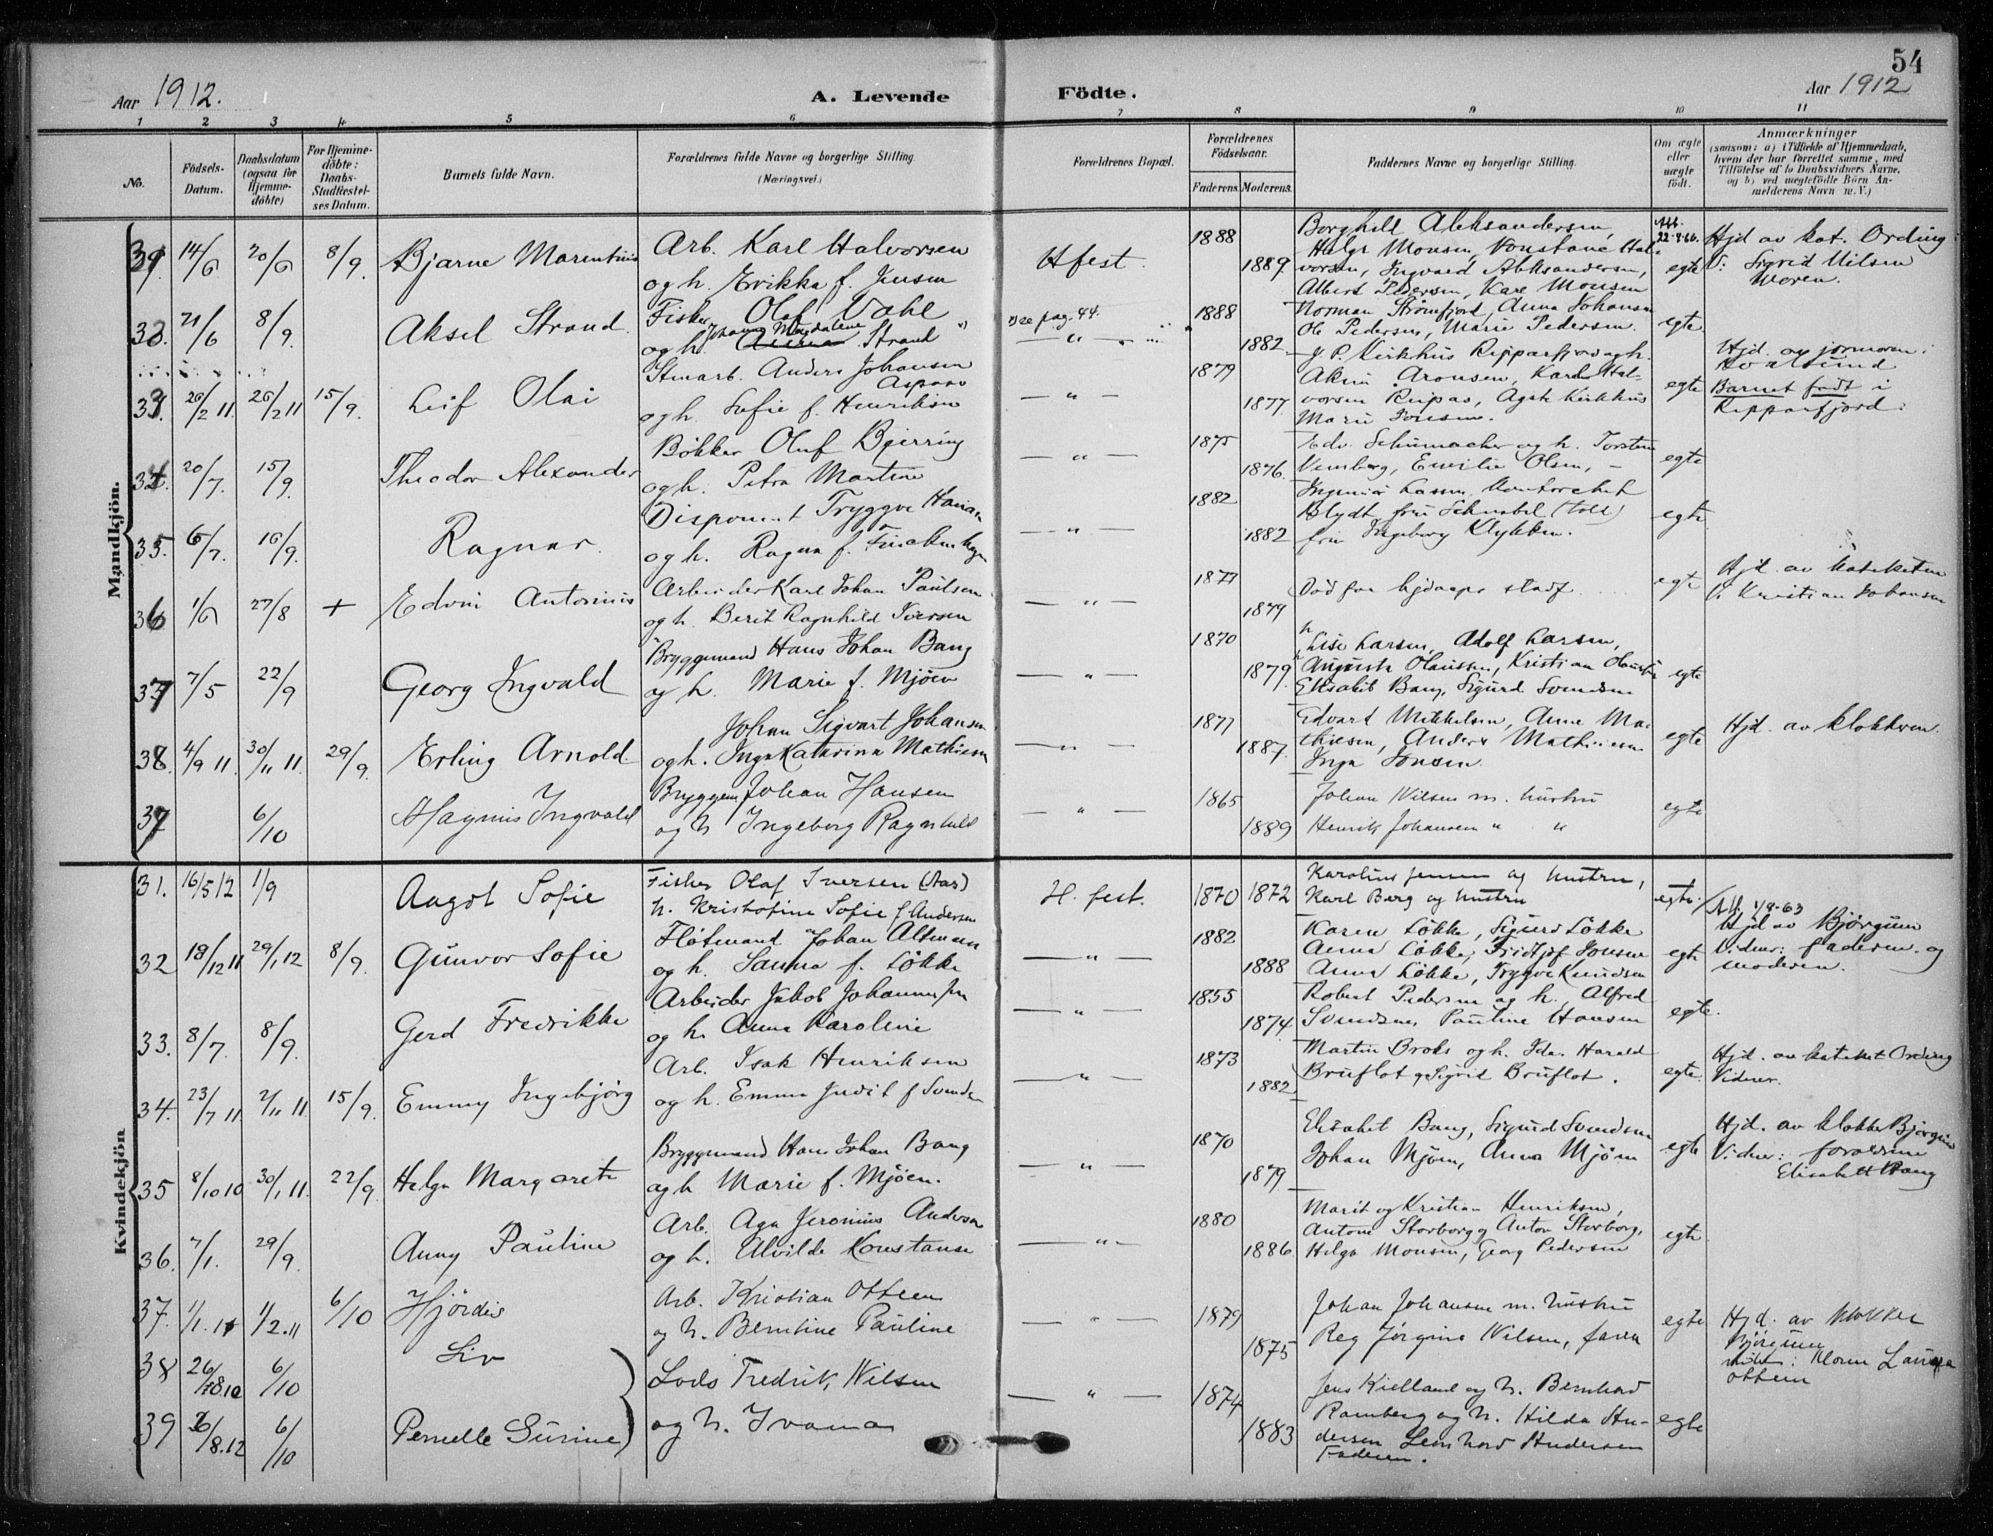 54
Aar 1912.
A. Levende
Födte.
Aar 1912
1 2 3 4 5 6 7 8 9 10 11
No.
Födsels-Datum.
Daabsdatum (ogsaa for Hjemmedöbte)
For Hjemmedöbte: Daabs-Stadfæstelses Datum.
Barnets fulde Navn.
Forældrenes fulde Navne og borgerlige Stilling.
(Næringsvei.)
Forældrenes Bopæl.
Forældrenes Födselsaar.
Faderens. Moderens.
Faddernes Navne og borgerlige Stilling.
Om ægte eller uægte födt.
Anmærkninger
(saasom: a) i Tilfælde af Hjemmedaab, hvem der har forrettet samme, med Tilföielse af to Daabsvidners Navne, og b) ved uægtefödte Börn Anmelderens Navn m. V.)
Mandkjön.
14/6 20/6 8/9. Bjarne Marentius
Arb. Karl Halvorsen
og h. Erikka f. Jensen
Hfest.
1888
1889
Borghill Aleksandersen,
Helge Monsen, Konstane Hal-
vorsen, Ingvard Aleksandersen,
Albert Pedersen, Karl Monsen
egte
Hjd av kat. Ording
V: Sigrid Nilsen
21/6 8/9. Aksel Strand.
Fisker Olaf Dahl
og h. Johanna Magdalene Strand
se pag. 44.
1888
1882
Norman Strømfjord, Anna Johansen
Ole Pedersen, Marie Pedersen.
egte
26/2 11 26/2 11 15/9. Leif Olai
Anders Johansen
og h. Sofie f. Henriksen
— " —
1879
1877
Aronsen,
egte
Hjd. av jormoren i
Kvalsund
Barnet født i
Repparfjord.
34. 20/7. 15/9. Theodor Alexander
Bøkker Oluf Bjerring
og h. Petra Martine
— " —
1875
1876
Edv. Schumacher og h. Torsten
Emilie Olsen, —
egte
35. 6/7. 16/9. Ragnar.
Disponent Tryggve Hansen
og h. Ragna f.
— " —
1882
1882
fru Ingeborg Klykken.
egte
36 1/6 27/8 + Edvin Antonius
Arbeider Karl Johan Paulsen
og h. Berit Ragnhild Iversen
— " —
1877
1879
Død før hjdaaps stadf.
egte
Hjd. av kateketen
V. Kristian Johansen
37 7/5 22/9 Georg Ingvald
Bryggemand Hans Johan Bang
og h. Marie f. Mjøen
— " —
1870
1879
Lise Larsen, Adolf Larsen,
Augusta Olaussen, Kristian Olaussen
Elisabet Bang, Sigurd Svendsen
egte
38. 4/9 11. 30/11 11. 29/9. Erling Arnold.
Johan Sigvart Johansen
og h. Inga Katarina Mathisen
— " —
1877
1887.
Edvart Mikkelsen, Anne Ma-
thiesen, Anders Mathiesen
Inga Jensen.
egte
Hjd. av klokkeren.
6/10 Magnus Ingvald
Bryggem Johan Hansen
og h Ingeborg Ragnhild
— " —
1865
1889
Johan Nilsen m. hustru
Henrik Johansen " "
egte
Kvindekjön
31. 16/5 12 1/9 Aagot Sofie
Fisker Olaf Iversen (Aas)
h. Kristofine Sofie f Andersen
H. fest.
1870 1872
Karolius Jensen og hustru,
Karl Berg og hustru
egte.
32 18/12 11 29/1 12 8/9. Gunvor Sofie
Fløtmand Johan Altmann
og h. Sanna f. Løkke
— " —
1882
1888
Karen Løkke, Sigurd Løkke
Anna Løkke, Fridtjof Jonsen
Anna Løkke, Tryggve Knudsen
egte
Aff. 1/8-63
Hjd av Bjørgum
Vidner: faderen og
moderen.
33. 8/7. 8/9. Gerd Fredrikke
Arbeider Jakob Johannesen
og h. Anna Karoline
— " —
1855
1874
Robert Pedersen og h. Alfred
Svendsen, Pauline Hansen
egte.
34. 23/7 11 2/11 11. 15/9. Emmy Ingebjørg
Arb. Isak Henriksen
og h. Emma Judit f Svendsen
— " —
1873
1882
Martin Broks og h. Ida. Harald
Bruflot og Sigrid Bruflot.
egte
Hjd. av kateket Ording
Vidner.
35 8/10 10 30/1 11. 22/9. Helga Margarete
Bryggemand Hans Johan Bang
og h Marie f. Mjøen.
— " —
1870
1879
Elisabet Bang, Sigurd Svendsen
Johan Mjøen, Anna Mjøen
egte
Hjd. av klokker Bjørgum
Vidner: forældrene
Elisabeth Bang
36. 7/1. 29/9. Anny Pauline
Arb. Aga Jeronius Andersen
og h. Alvilde Konstanse
— " —
1880
1886
Marit og Kristian Henriksen,
Antone Storborg og Anton Storborg,
Helga Monsen, Georg Pedersen
egte.
37. 1/1. 11 1/2. 11 6/10 Hjørdis
Arb. Kristian Ottem
og h. Berntine Pauline
— " —
1879
1875
Johan Johansen m. hustru
Reg Jørgine Nilsen, faren
egte
Hjd. av klokker
Bjørgum
Ottem
38 26/8.12 6/10 Liv
Lods Fredrik Nilsen
— " —
1874
Jens Kielland og h. Bernhard
39 26/8.12 6/10 Pernelle Gurine
og h. Ivana
1883
Ramberg og h. Hilda An-
dersen Leonhard Andersen
Faderen.
egte